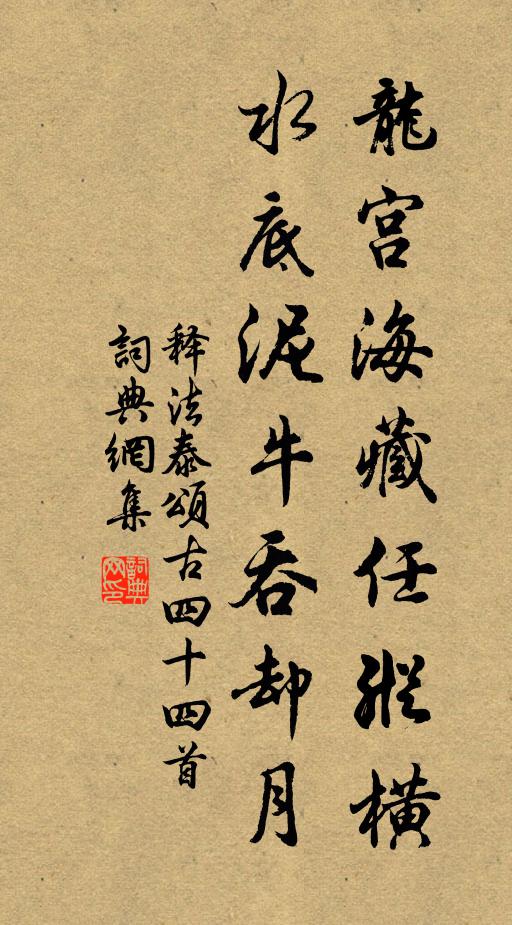 龍宮海藏任縱橫
水底泥牛吞却月
释法泰頌古四十四首
詞典網集
詞典网印